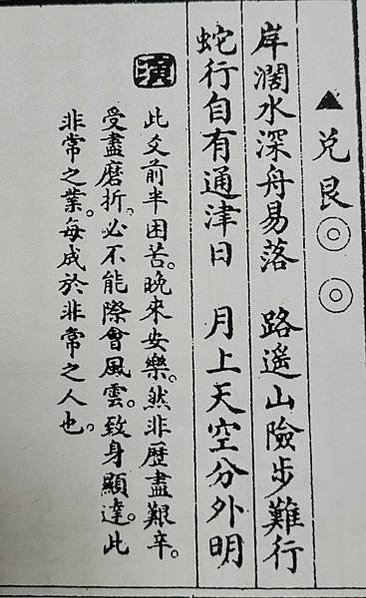 ▲兌艮◎◎
岸濶水深舟易落　路遥山險步難行
蛇行自有通津日　月上天空分外明
演
此爻前半困苦。晚來安樂。然非歷盡艱辛。
受盡磨折、必不能際會風雲。致身顯達。此
非常之業。每成於非常之人也。